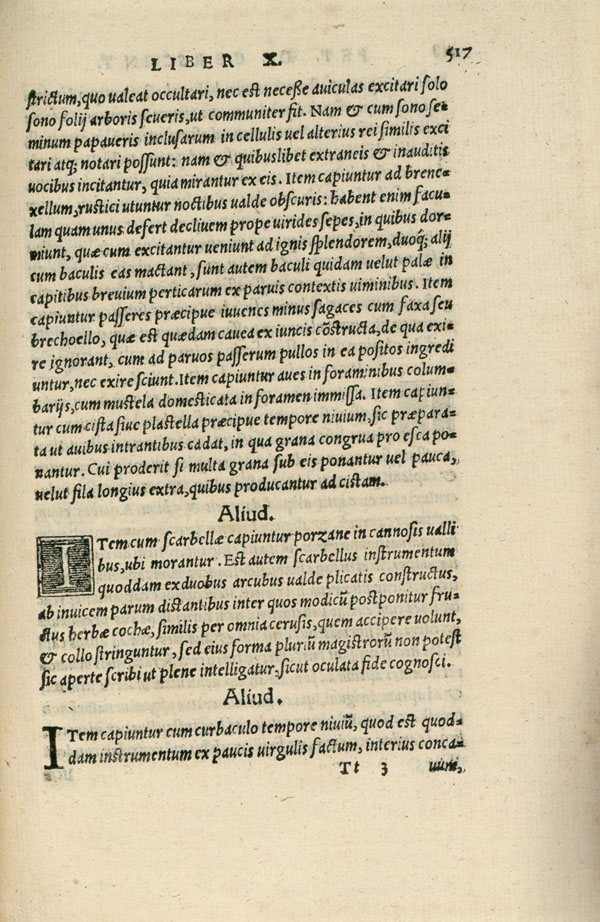 LIBER X. 517
strictum, quo ualeat occultari, nec est necesse auiculas excitari solo
sono folij arboris seueris, ut communiter fit. Nam & cum sono se-
minum papaueris inclusarum in cellulis uel alterius rei similis exci
tari atq; notari possunt: nam & quibuslibet extraneis & inauditis
uocibus incitantur, quia mirantur ex eis. Item capiuntur ad breue-
xellum, rustici utuntur noctibus ualde obscuris: habent enim facu-
lam quam unus defert decliuem prope uirides sepes, in quibus dor-
miunt, quæ cum excitantur ueniunt ad ignis splendorem, duoq́; alij
cum baculis eas mactant, sunt autem baculi quidam uelut palæ in
capitibus breuium perticarum ex paruis contextis uiminibus. Item
capiuntur passeres præcipue iuuenes minus sagaces cum faxa seu
brechoello, quæ est quædam cauea ex iuncis cōstructa, de qua exi-
re ignorant, cum ad paruos passerum pullos in ea positos ingredi
untur, nec exire sciunt. Item capiuntur aues in foraminibus colum-
barijs, cum mustela domesticata in foramen immissa. Item capiun-
tur cum cista siue plastella præcipue tempore niuium, sic præpara-
ta ut auibus intrantibus cadat, in qua grana congrua pro esca po-
nantur. Cui proderit si multa grana sub eis ponantur uel pauca,
uelut fila longius extra, quibus producantur ad cistam.
Aliud.
ITem cum scarbellæ capiuntur porzane in cannosis ualli
bus, ubi morantur. Est autem scarbellus instrumentum
quoddam ex duobus arcubus ualde plicatis constructus,
ab inuicem parum distantibus inter quos modicũ postponitur fru-
ctus herbæ cochæ, similis per omnia cerusis, quem accipere uolunt,
& collo stringuntur, sed eius forma pluriũ magistrorũ non potest
sic aperte scribi ut plene intelligatur, sicut oculata fide cognosci.
Aliud.
ITem capiuntur cum curbaculo tempore niuiũ, quod est quod-
dam instrumentum ex paucis uirgulis factum, interius conca-
Tt 3 uum,